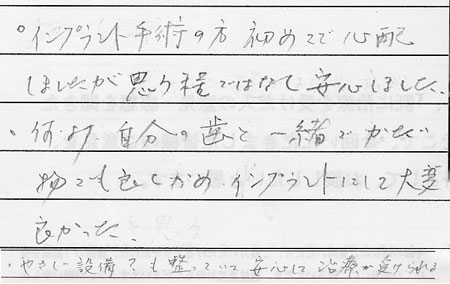 。インプラント手術の方 初めてで心配
しましたが思う程ではなく安心しました。
・何より自分の歯と一緒でかたい
物でも良くかめ、インプラントにして大変
良かった。
・やさしい設備でも整っていて安心して治療が受けられる